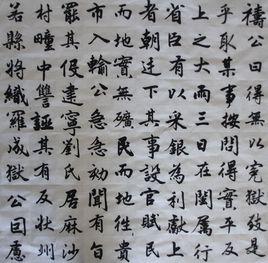 禱公曰得無冤獄致是
乎取某事按閱得實平反
上之大雨三日在閩属行
省臣有以采銀為利獻上
者朝廷下其事設官賦民
而地實無礦民而地往貴
市入輸公急急動聞有旬
罷其役建寧劉氏居麻沙
村疃中讐誣其有反狀州
若縣將織羅成獄公因慮